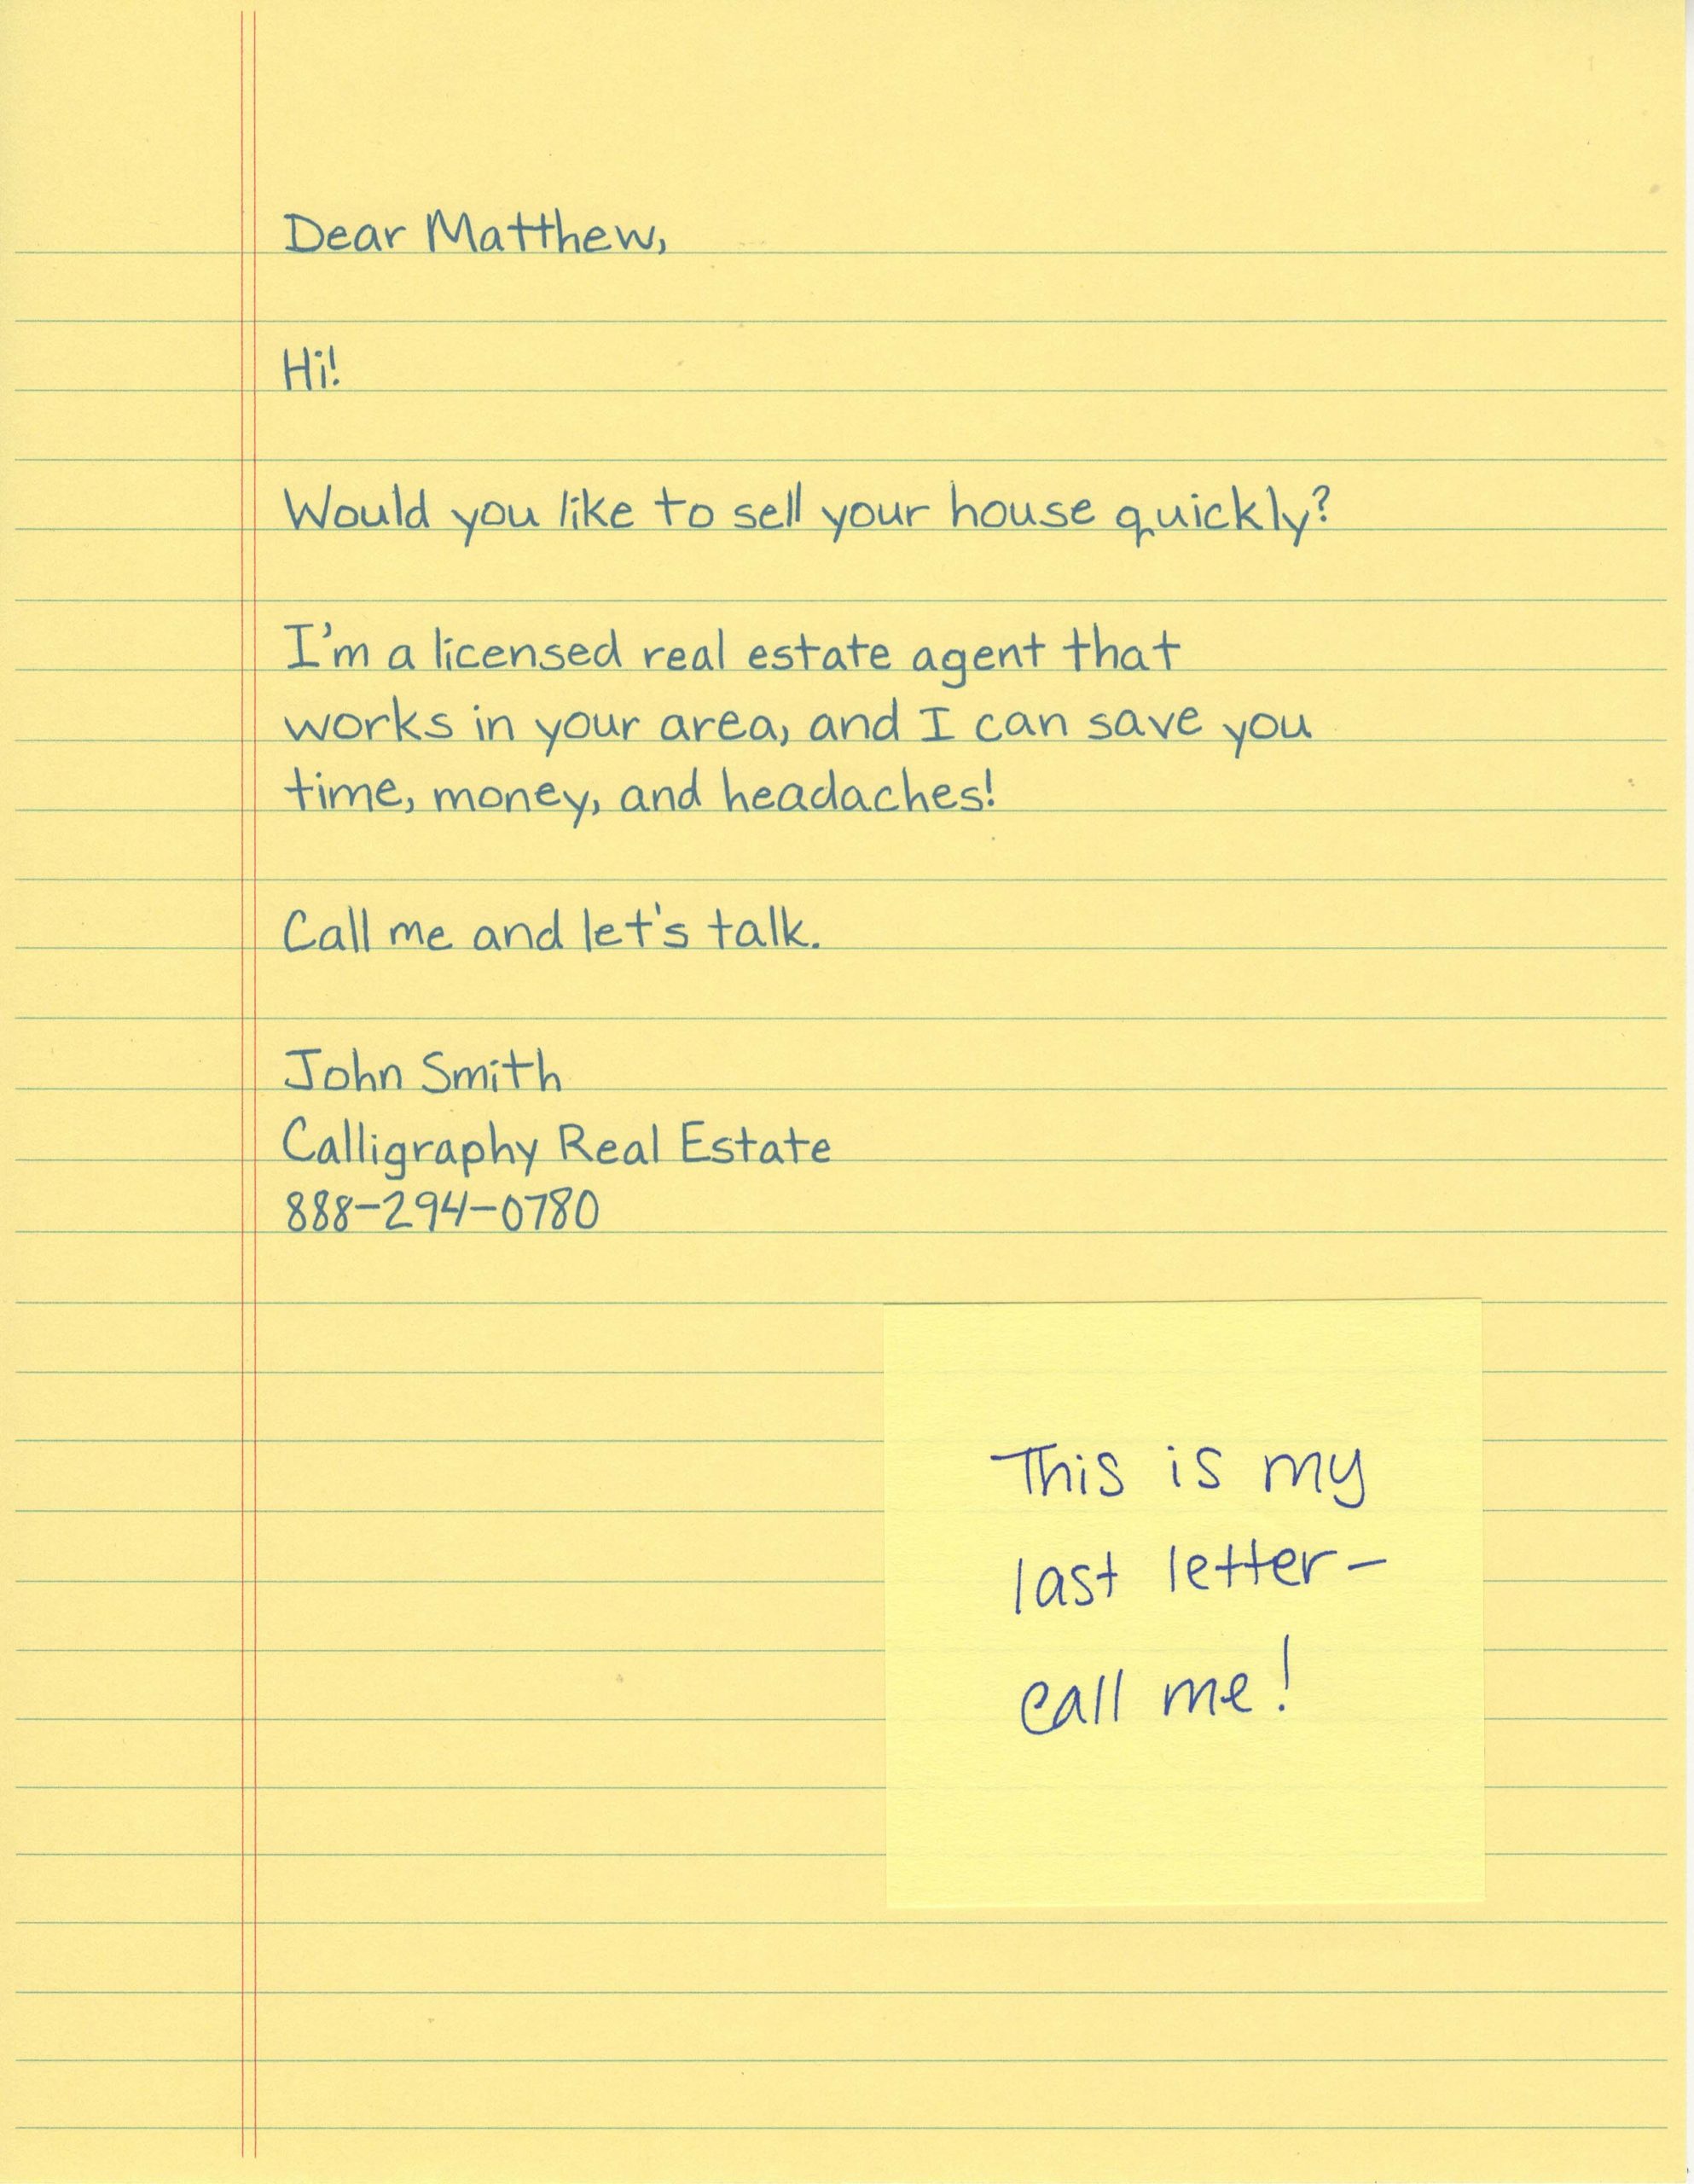 Dear Matthew,
Hi!
Would you like to sell your house quickly?
I'm a licensed real estate agent that
works in your area, and I can save you
time, money, and headaches!
Call me and let's talk.
John Smith
Calligraphy Real Estate
888-294-0780
This is my
last letter-
call me!